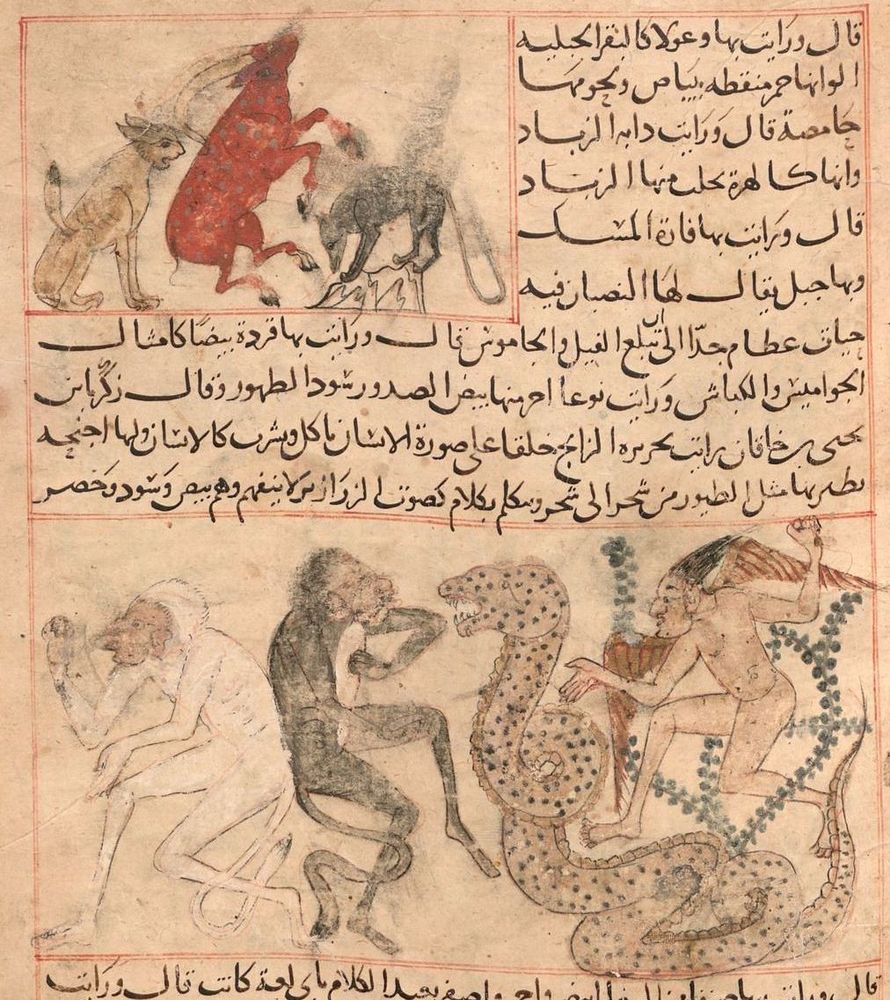 قال ورايت بها وعولا كالبقر الجبليه
الوانها حمر منقطه ببياض ولحومها
حامضة قال ورايت دابه الزباد
وانها كالهرة يحلب منها الزباد
قال ورايت بها فارة المسك
وبها جبل يقال لها النصبان فيه
حيات عظام جدا الى ان تبلع الفيل والجاموس قال ورايت بها قردة بيضا كامثال
الجواميس والكباش ورايت نوعا اخر منها بيض الصدور سود الظهور وقال زكريا بن
يحيى بن خاقان رايت بجزيرة الزابج خلقا على صورة الانسان ياكل ويشرب كالانسان ولها اجنحه
يطير بها مثل الطيور من شجر الى شجر ويتكلم بكلام كصوت الزرازير لا يفهم وهم بيض وسود وخضر
قال ورايت الكلام باي لغة كانت قال ورايت